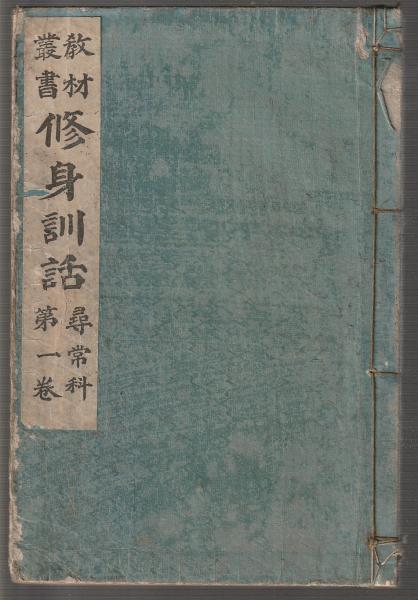 教材
叢書
修身訓話
尋常科
第一卷